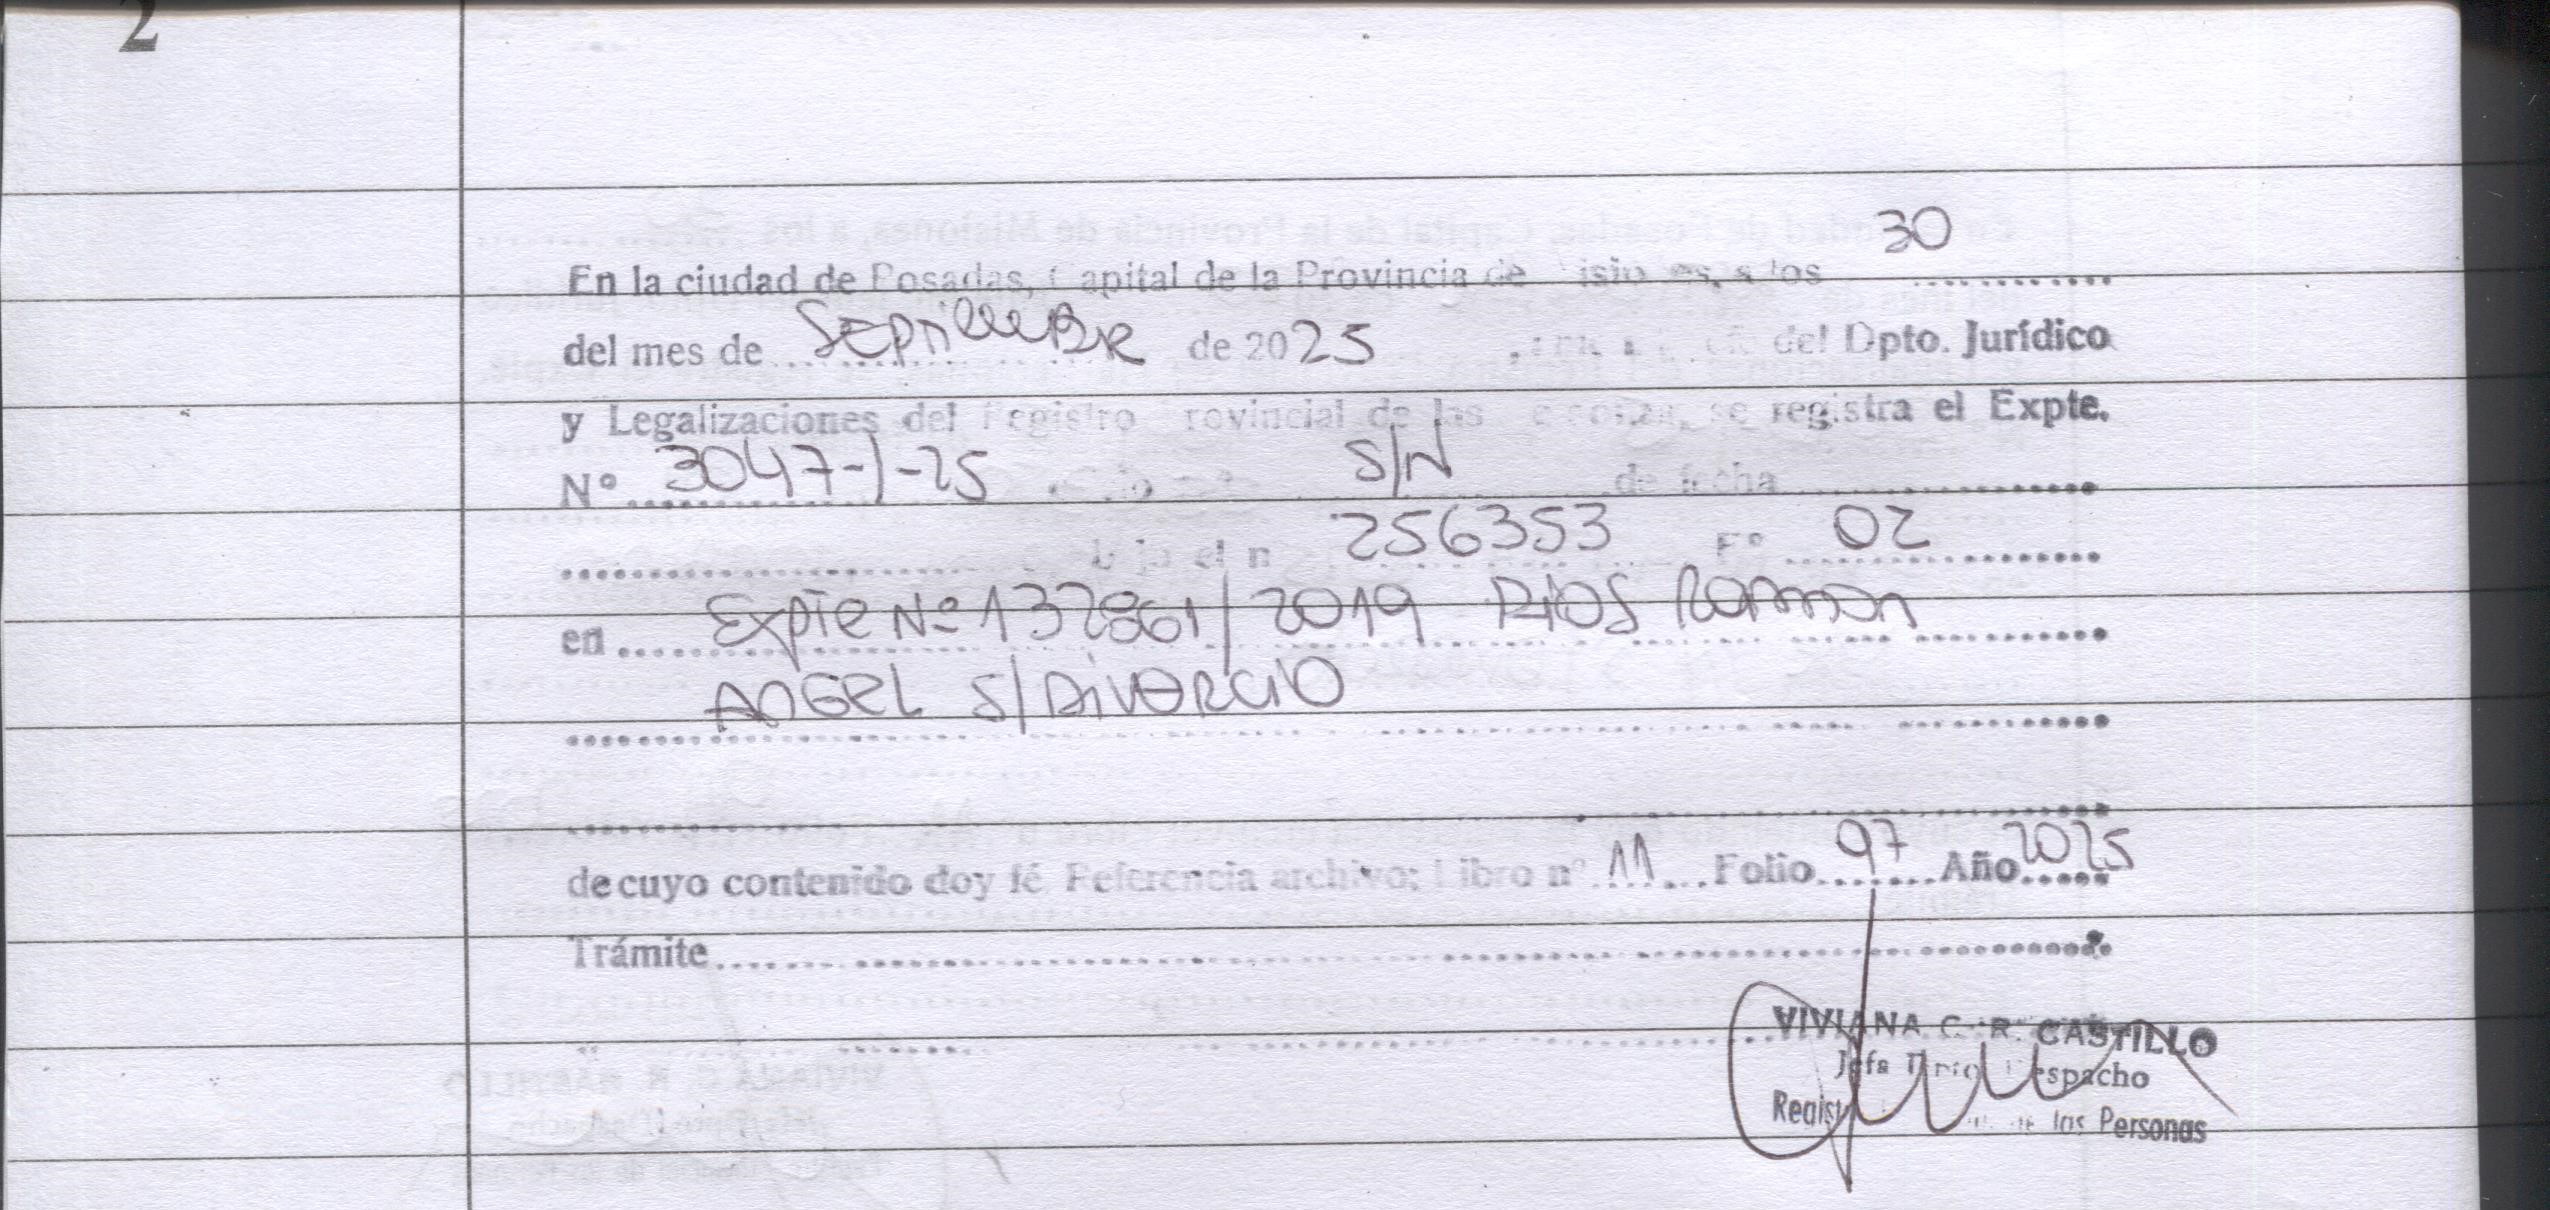 2
30
En la ciudad de Posadas, Capital de la Provincia de Misiones, a los
del mes de Septiembre de 2025 del Dpto. Jurídico
y Legalizaciones del Registro Provincial de las Personas, se registra el Expte.
Nº 3047-J-25 S/N de fecha
bajo el n 256353 Fº 02
en Expte Nº 132861/2019 Rios Ramon
Angel S/Divorcio
de cuyo contenido doy fé. Referencia archivo: Libro nº 11 Folio 97 Año 2025
Trámite
VIVIANA C. R. CASTILLO
Jefa Dpto Despacho
las Personas